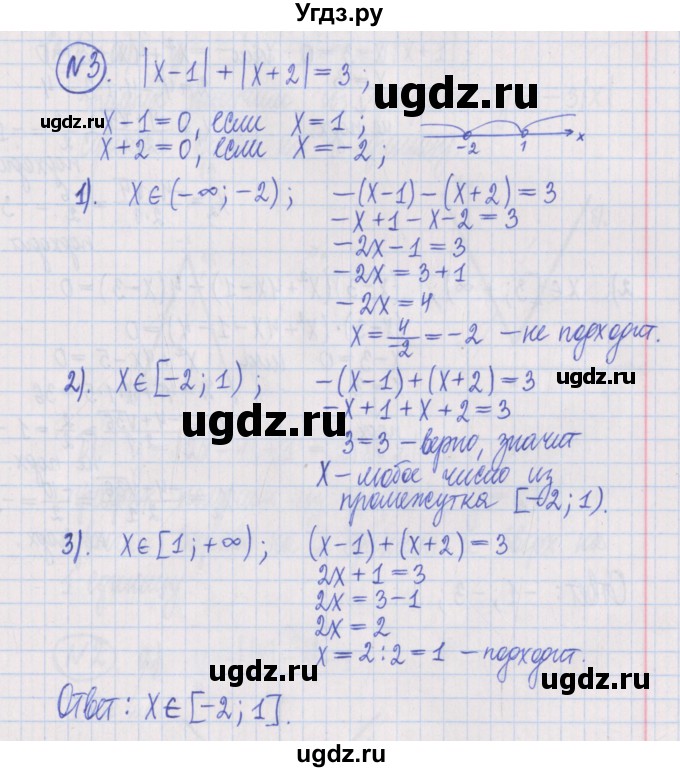 Угдз.ру
№3. |x-1|+|x+2|=3;
x-1=0, если x=1;
x+2=0, если x=-2;
-2 1 x
1). x∈(-∞;-2); -(x-1)-(x+2)=3
-x+1-x-2=3
-2x-1=3
-2x=3+1
-2x=4
x=4/-2=-2 – не подходит.
2). x∈[-2;1); -(x-1)+(x+2)=3
-x+1+x+2=3
3=3 – верно, значит
x – любое число из
промежутка [-2;1).
3). x∈[1;+∞); (x-1)+(x+2)=3
2x+1=3
2x=3-1
2x=2
x=2:2=1 – подходит.
Ответ: x∈[-2;1].
ugdz.ru
ugdz.ru
ugdz.ru
ugdz.ru
ugdz.ru
ugdz.ru
ugdz.ru
ugdz.ru
ugdz.ru